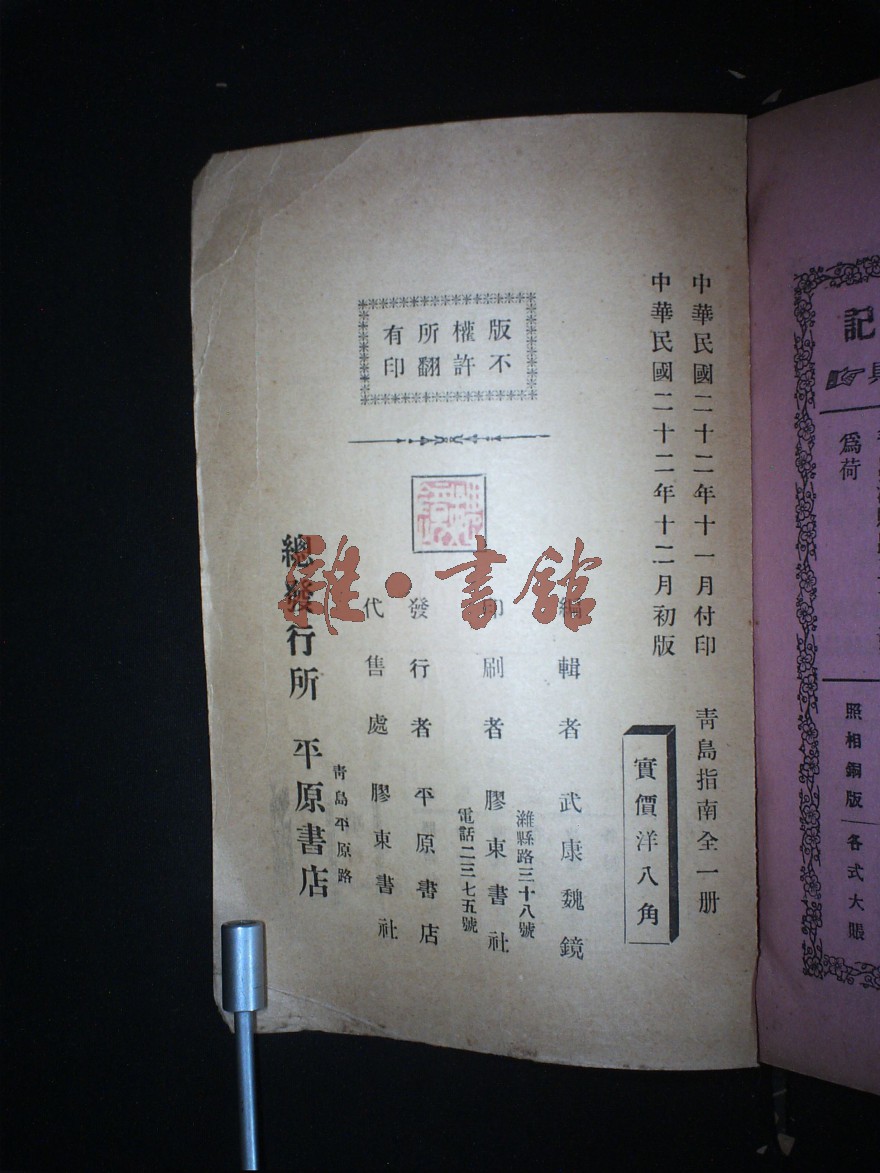 中華民國二十二年十一月付印　靑島指南全一册
中華民國二十二年十二月初版
實價洋八角
編輯者　武康魏鏡
濰縣路三十八號
印刷者　膠東書社
電話二三七五號
發行者　平原書店
代售處　膠東書社
靑島平原路
總發行所　平原書店
版權所有
不許翻印
雜·書館
記
爲荷
照相銅版
各式大賬